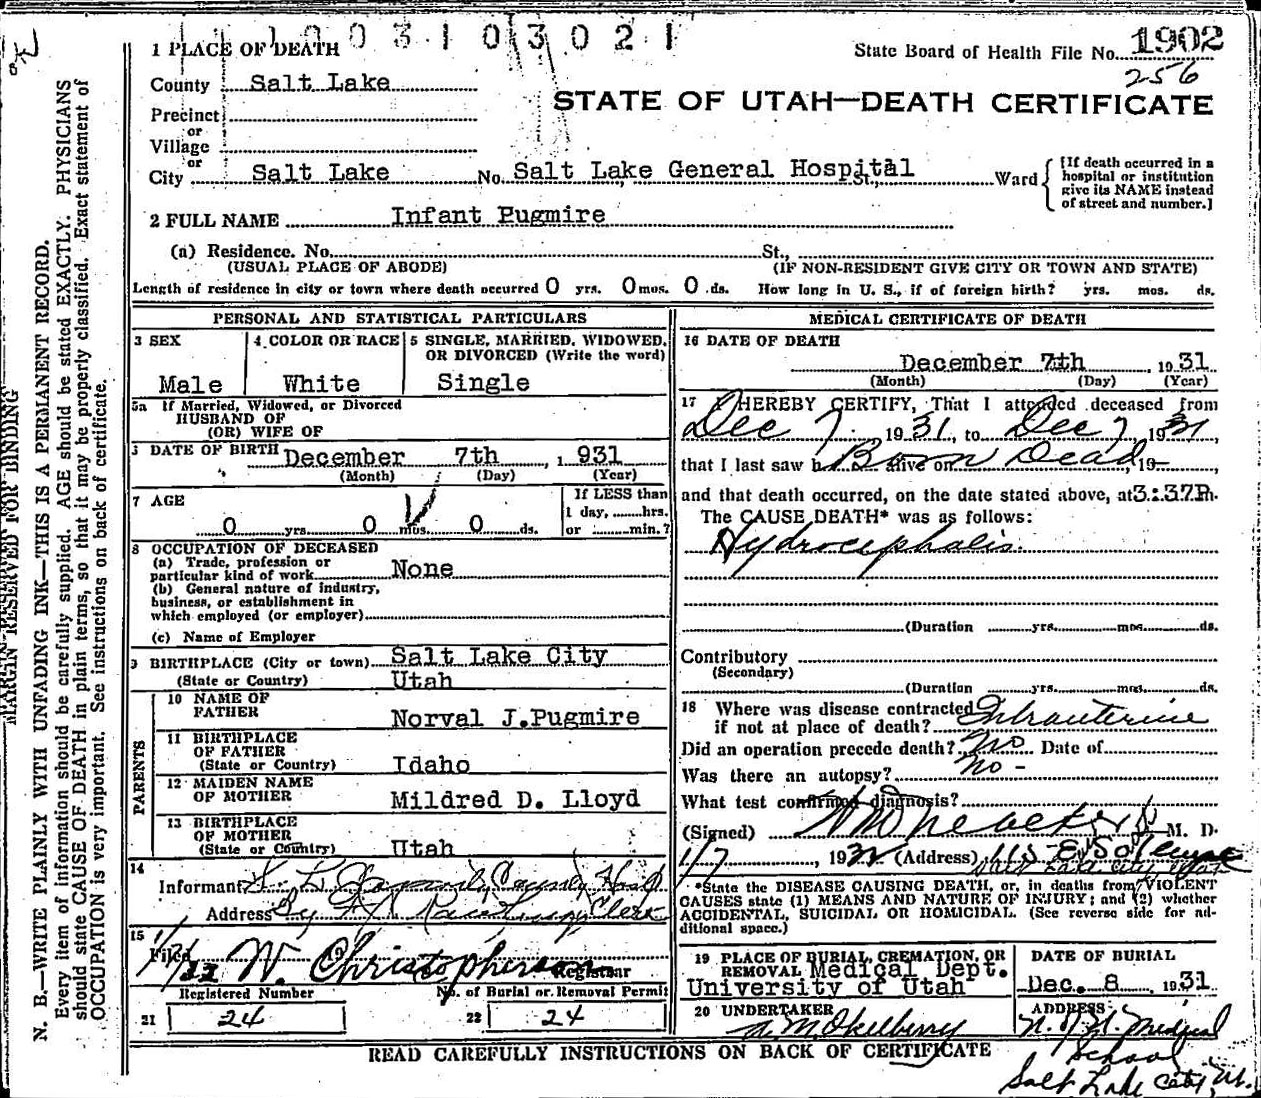 1 PLACE OF DEATH
1003103021
State Board of Health File No. 1902
256
County Salt Lake
STATE OF UTAH—DEATH CERTIFICATE
Precinct
or
Village
or
City Salt Lake No. Salt Lake General Hospital St., Ward
[If death occurred in a
hospital or institution
give its NAME instead
of street and number.]
2 FULL NAME Infant Pugmire
(a) Residence. No. St.,
(USUAL PLACE OF ABODE) (IF NON-RESIDENT GIVE CITY OR TOWN AND STATE)
Length of residence in city or town where death occurred 0 yrs. 0 mos. 0 ds. How long in U. S., if of foreign birth? yrs. mos. ds.
PERSONAL AND STATISTICAL PARTICULARS
3 SEX 4 COLOR OR RACE 5 SINGLE, MARRIED, WIDOWED,
OR DIVORCED (Write the word)
Male White Single
5a If Married, Widowed, or Divorced
HUSBAND OF
(OR) WIFE OF
DATE OF BIRTH December 7th, 1931
(Month) (Day) (Year)
7 AGE
0 yrs. 0 mos. 0 ds.
If LESS than
1 day, hrs.
or min.?
8 OCCUPATION OF DECEASED
(a) Trade, profession or
particular kind of work None
(b) General nature of industry,
business, or establishment in
which employed (or employer)
(c) Name of Employer
9 BIRTHPLACE (City or town) Salt Lake City
(State or Country) Utah
PARENTS
10 NAME OF
FATHER Norval J.Pugmire
11 BIRTHPLACE
OF FATHER
(State or Country) Idaho
12 MAIDEN NAME
OF MOTHER Mildred D. Lloyd
13 BIRTHPLACE
OF MOTHER
(State or Country) Utah
14
Informant County Hosp
Address By Clerk
15
Filed 1/7/32 W. Christopherson Registrar
Registered Number No. of Burial or Removal Permit
21 24 22 24
MEDICAL CERTIFICATE OF DEATH
16 DATE OF DEATH
December 7th, 1931
(Month) (Day) (Year)
17 I HEREBY CERTIFY, That I attended deceased from
Dec 7 1931, to Dec 7 1931,
that I last saw h alive on Born Dead, 19
and that death occurred, on the date stated above, at 3:37P.m.
The CAUSE DEATH* was as follows:
Hydrocephalis.
(Duration yrs. mos. ds.
Contributory
(Secondary)
(Duration yrs. mos. ds.
18 Where was disease contracted
if not at place of death? Intrauterine
Did an operation precede death? No Date of
Was there an autopsy? No -
What test confirmed diagnosis?
(Signed) M. D.
1/7, 1932 (Address) 115 E So Temple
Salt Lake City Utah
*State the DISEASE CAUSING DEATH, or, in deaths from VIOLENT
CAUSES state (1) MEANS AND NATURE OF INJURY; and (2) whether
ACCIDENTAL, SUICIDAL OR HOMICIDAL. (See reverse side for ad-
ditional space.)
19 PLACE OF BURIAL, CREMATION, OR
REMOVAL Medical Dept.
University of Utah
DATE OF BURIAL
Dec. 8, 1931
20 UNDERTAKER
A. M. Okelberry
ADDRESS
U. of U. Medical
School
Salt Lake City, Ut.
READ CAREFULLY INSTRUCTIONS ON BACK OF CERTIFICATE
MARGIN RESERVED FOR BINDING
N. B.—WRITE PLAINLY WITH UNFADING INK—THIS IS A PERMANENT RECORD.
Every item of information should be carefully supplied. AGE should be stated EXACTLY. PHYSICIANS
should state CAUSE OF DEATH in plain terms, so that it may be properly classified. Exact statement of
OCCUPATION is very important. See instructions on back of certificate.